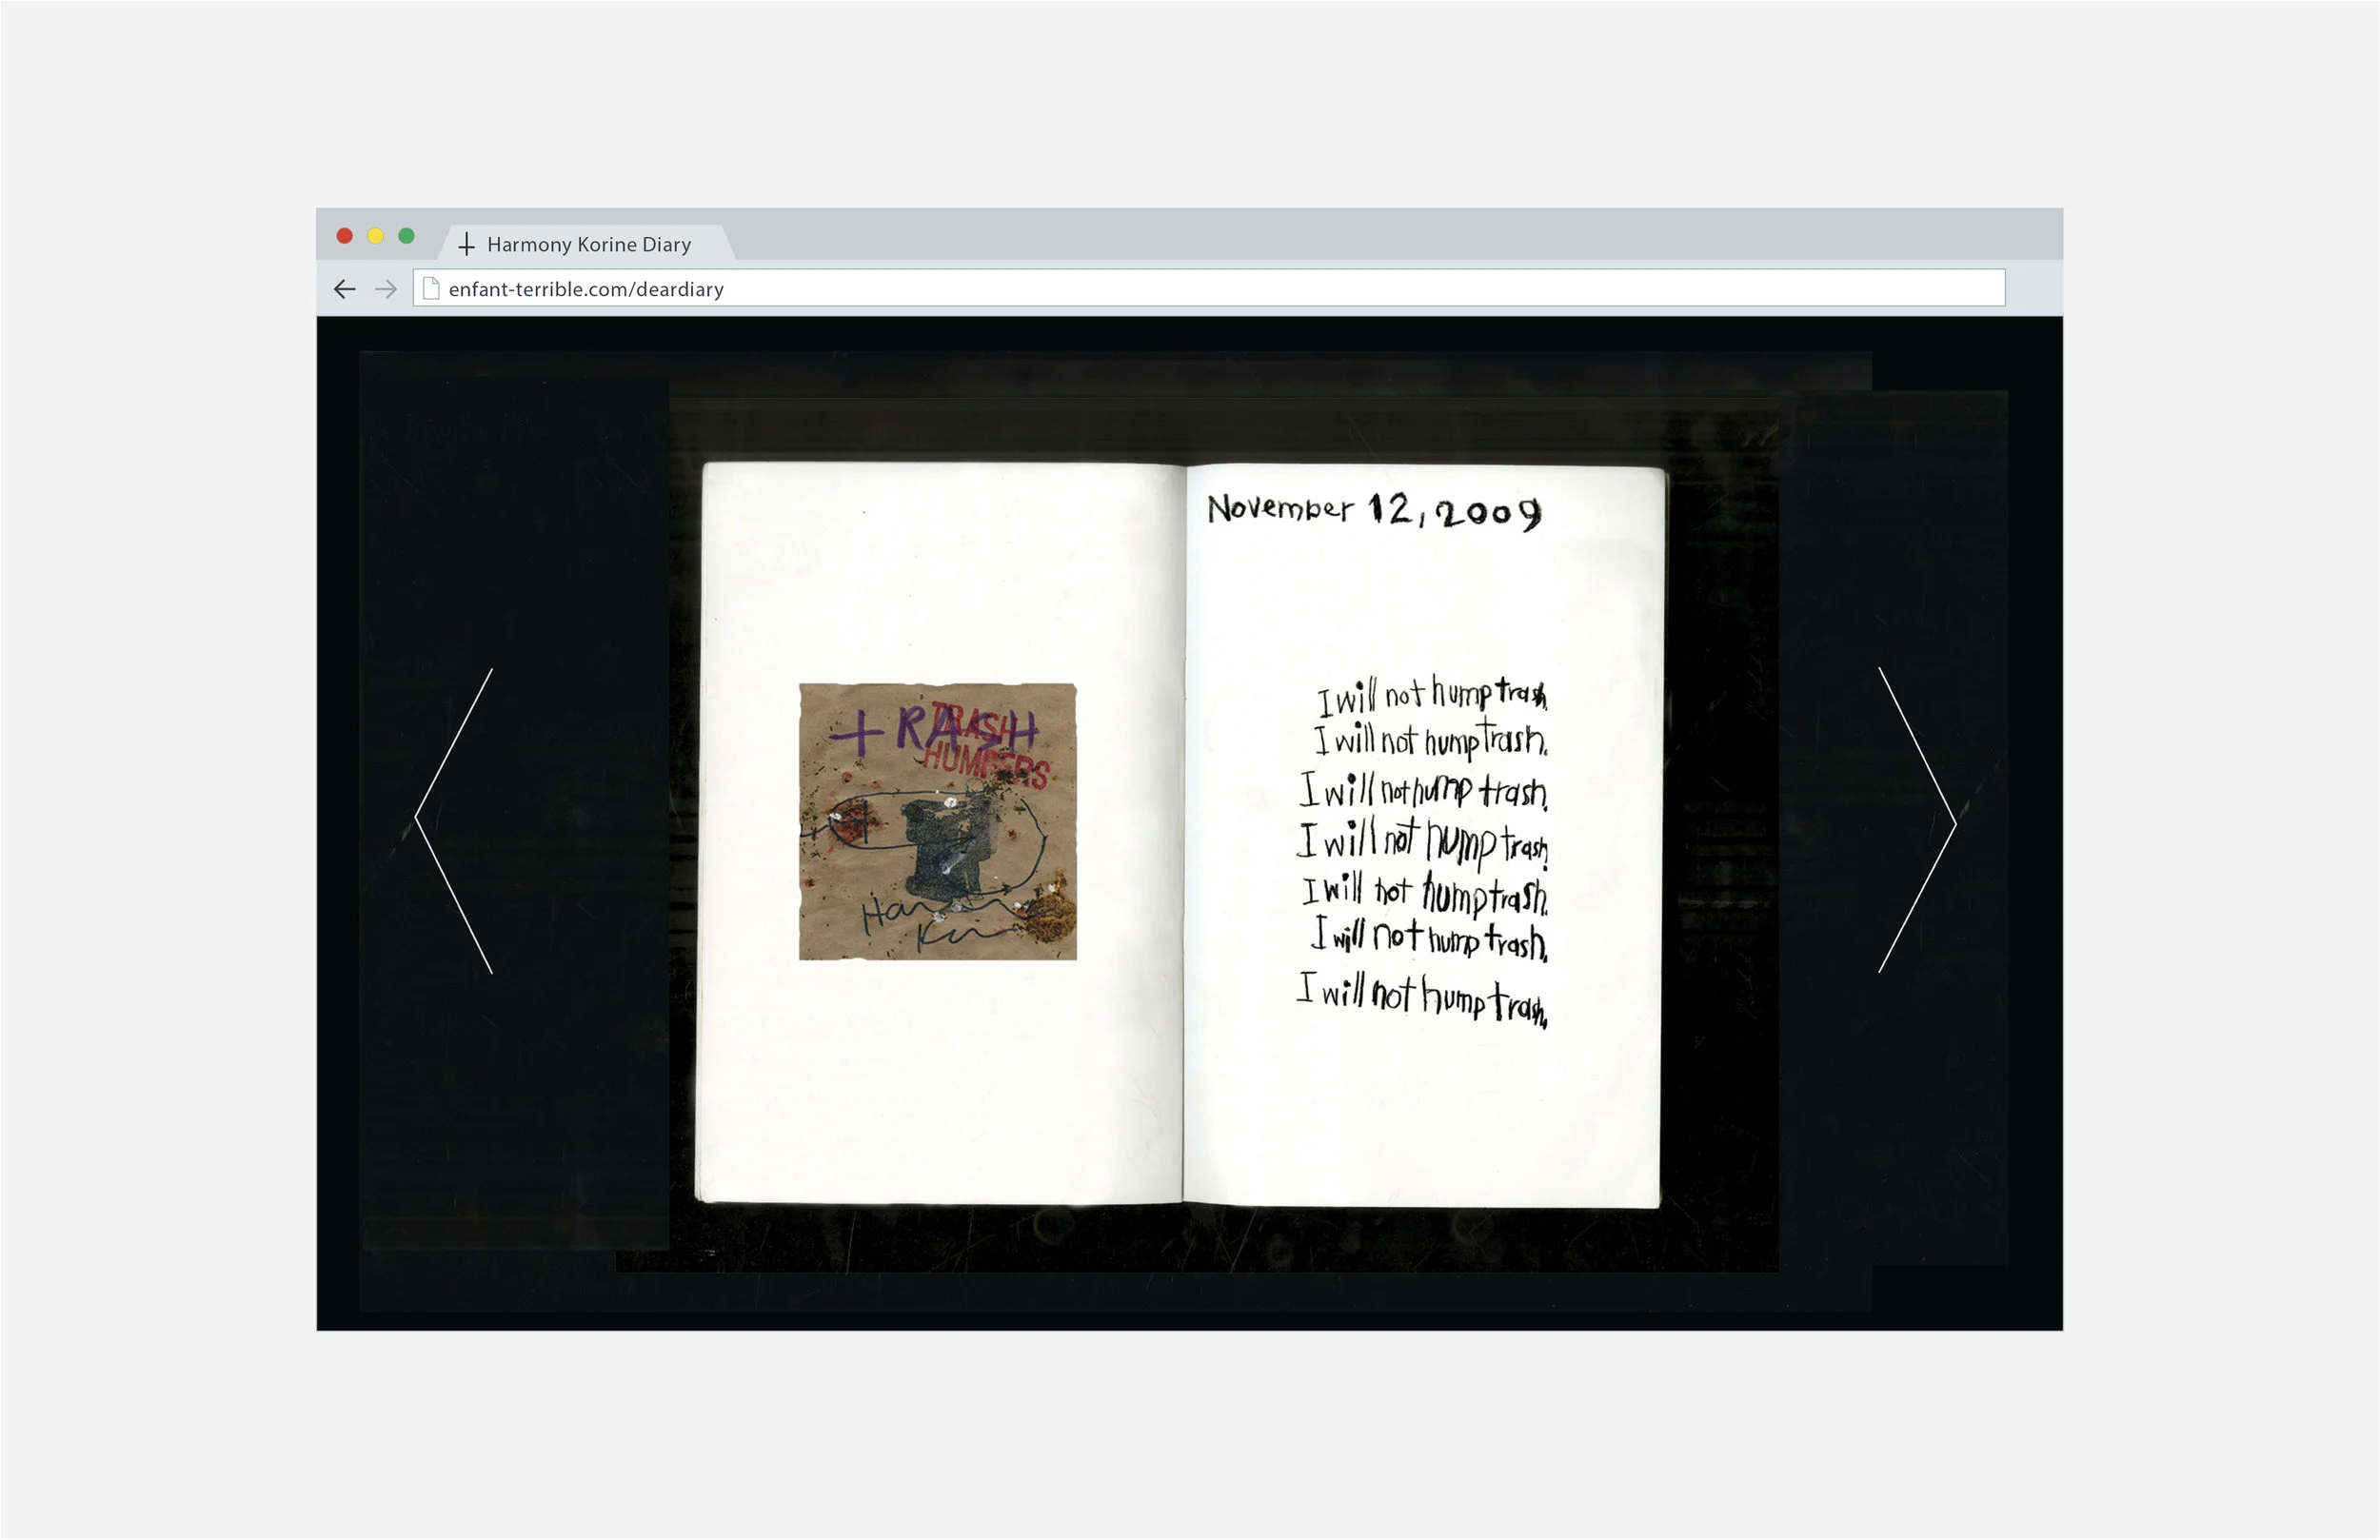 Harmony Korine Diary
enfant-terrible.com/deardiary
TRASH
TRASH
HUMPERS
November 12, 2009
I will not hump trash.
I will not hump trash.
I will not hump trash.
I will not hump trash.
I will not hump trash.
I will not hump trash.
I will not hump trash.